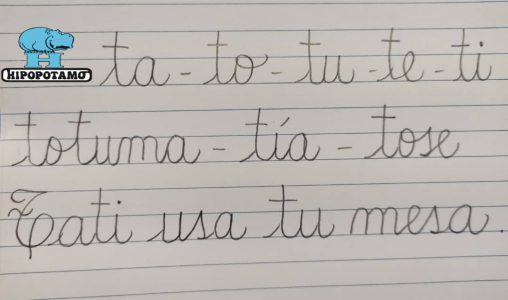 HIPOPOTAMO
ta - to - tu - te - ti
totuma - tía - tose
Tati usa tu mesa.